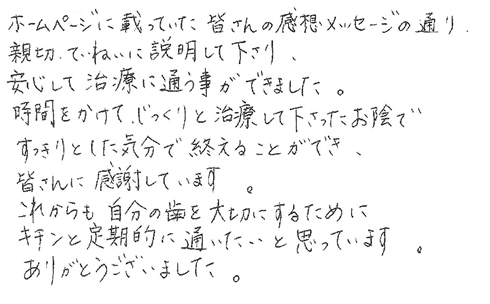 ホームページに載っていた皆さんの感想メッセージの通り、
親切、ていねいに説明して下さり、
安心して治療に通う事ができました。
時間をかけて、じっくりと治療して下さったお陰で
すっきりとした気分で終えることができ、
皆さんに感謝しています。
これからも自分の歯を大切にするために
キチンと定期的に通いたいと思っています。
ありがとうございました。